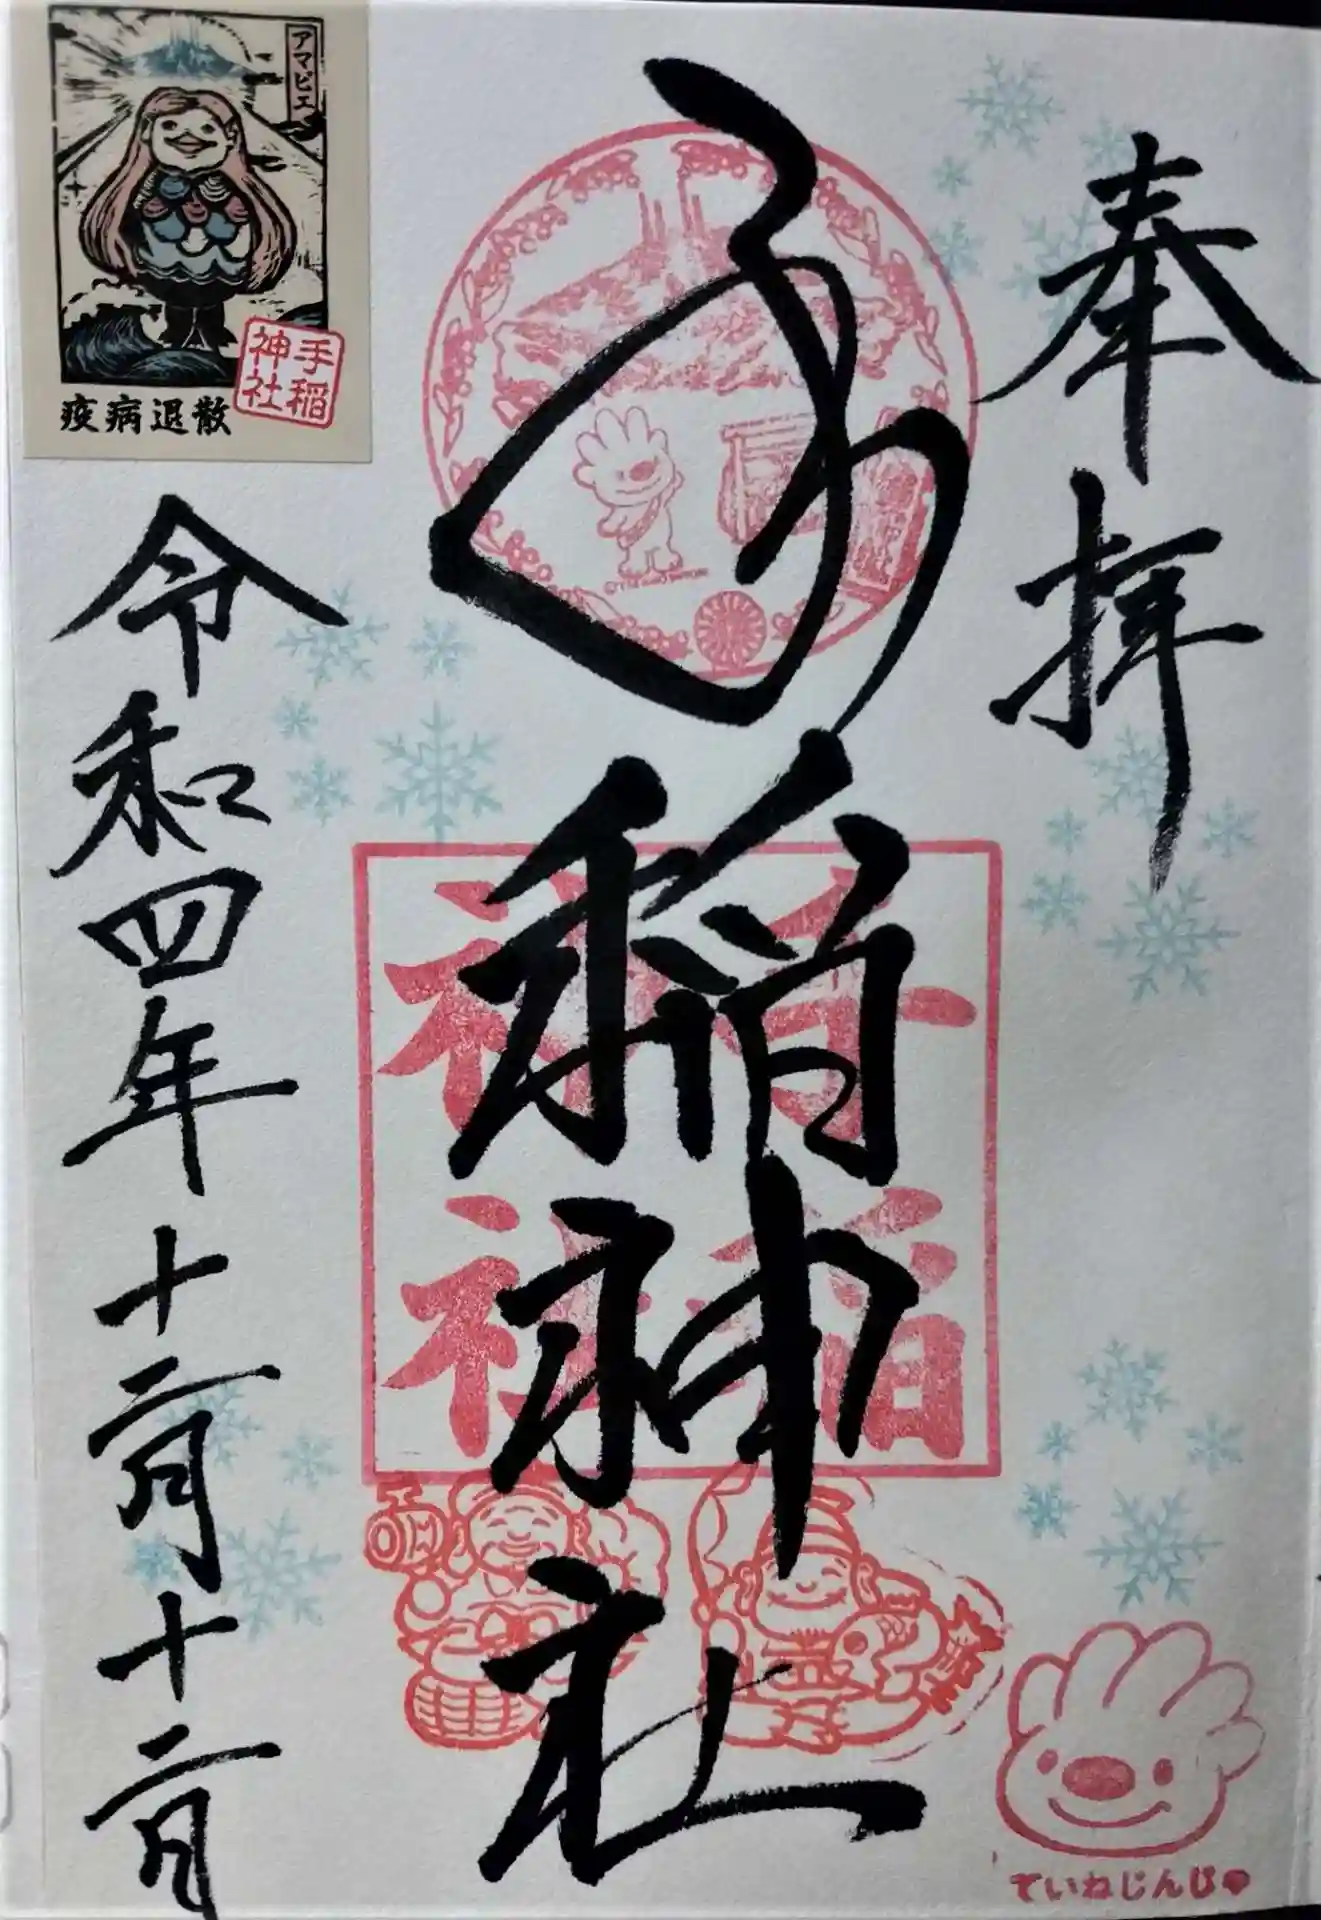 奉拝
手稲神社
令和四年十二月十二日
手稲
神社
アマビエ
手稲
神社
疫病退散
ていねじんじゃ